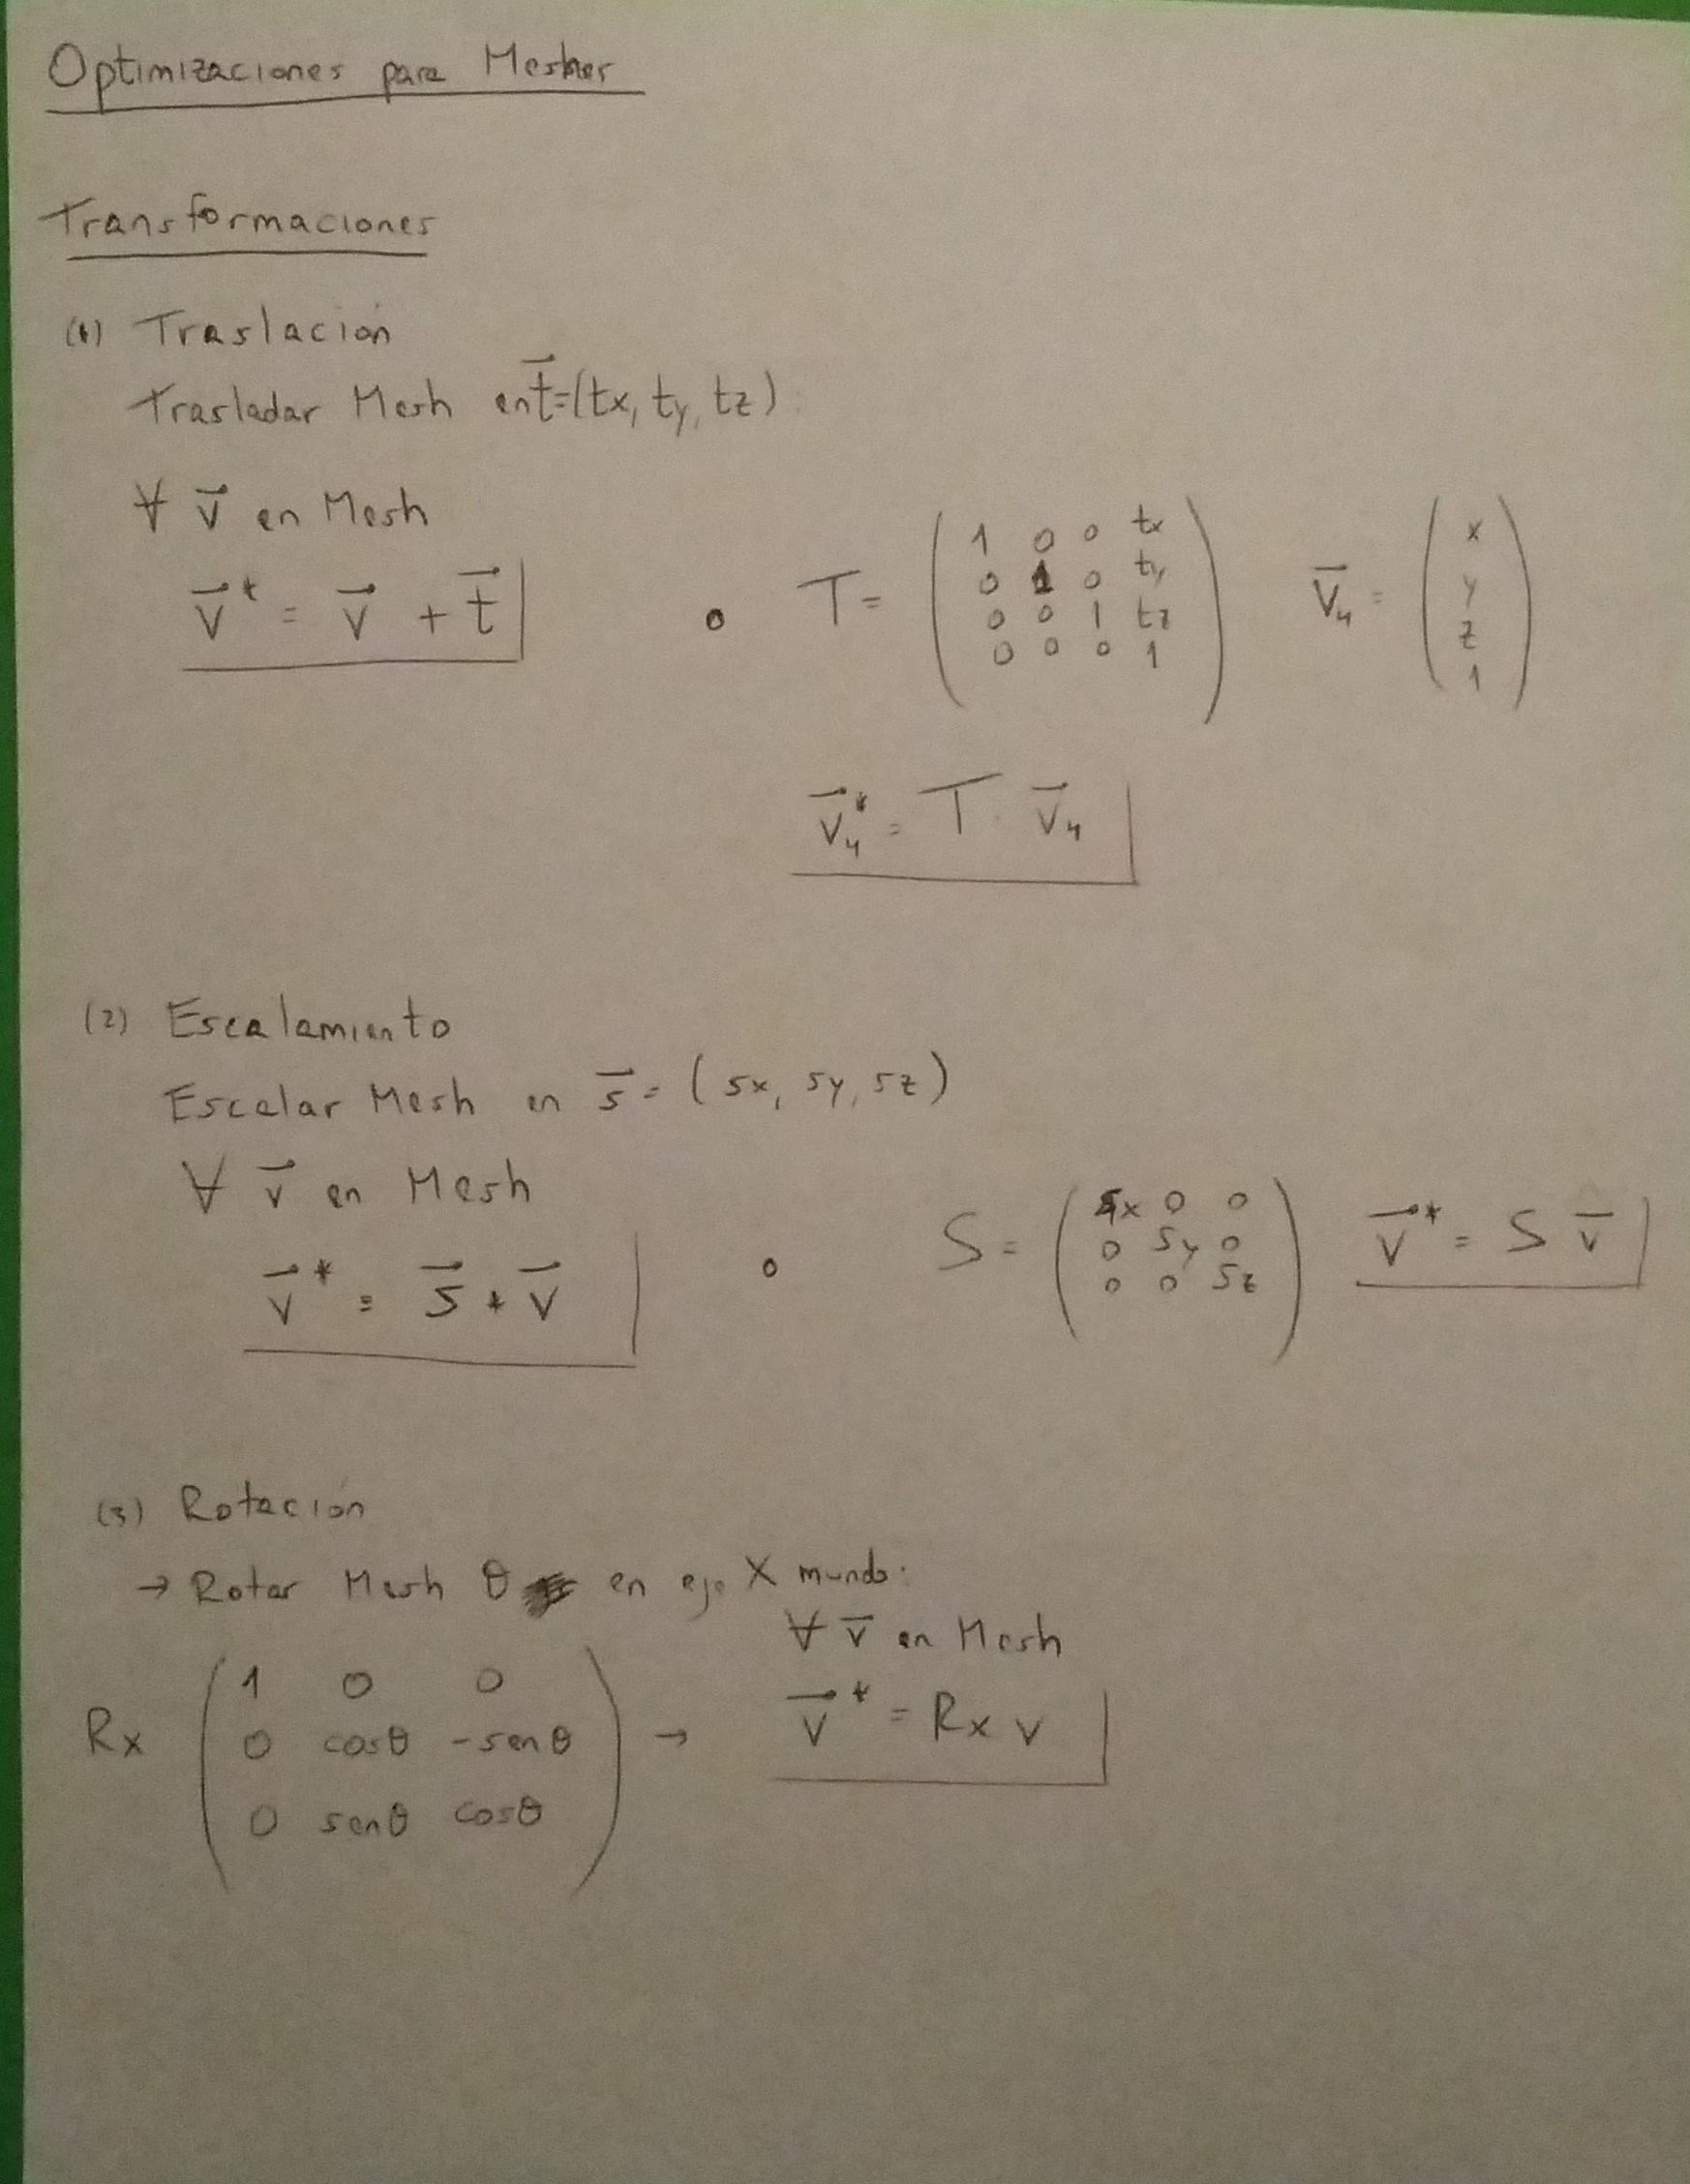 Optimizaciones para Mesher
Transformaciones
(1) Traslación
Trasladar Mesh en t⃗=(tx, ty, tz):
∀ v⃗ en Mesh
v⃗* = v⃗ + t⃗
o
T =
1 0 0 tx
0 1 0 ty
0 0 1 tz
0 0 0 1
v⃗₄ =
x
y
z
1
v⃗₄* = T · v⃗₄
(2) Escalamiento
Escalar Mesh en s⃗ = (sx, sy, sz)
∀ v⃗ en Mesh
v⃗* = s⃗ * v⃗
o
S =
sx 0 0
0 sy 0
0 0 sz
v⃗* = S v⃗
(3) Rotación
→ Rotar Mesh θ en eje X mundo:
∀ v⃗ en Mesh
Rx
1 0 0
0 cosθ -senθ
0 senθ cosθ
→
v⃗* = Rx v